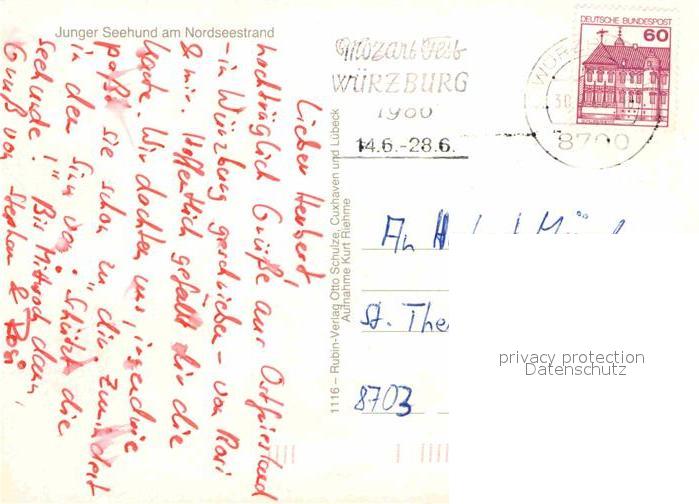 Junger Seehund am Nordseestrand
Mozart Fest
WÜRZBURG
1980
14.6.-28.6.
DEUTSCHE BUNDESPOST
60
8700
Lieber Herbert,
nachträglich Grüße aus Ostfriesland
- in Würzburg geschrieben - von Rosi
& mir. Hoffentlich gefällt dir die
Karte. Wir dachten uns, irgendwie
paßt sie schon zu dir, zumindest
in den Sinn von: "Schützt die
Seehunde!" Bis Mittwoch dann,
Gruß von Stephan & Rosi
1116 – Rubin-Verlag Otto Schulze, Cuxhaven und Lübeck
Aufnahme Kurt Riehme
An
St. The
8703
privacy protection
Datenschutz